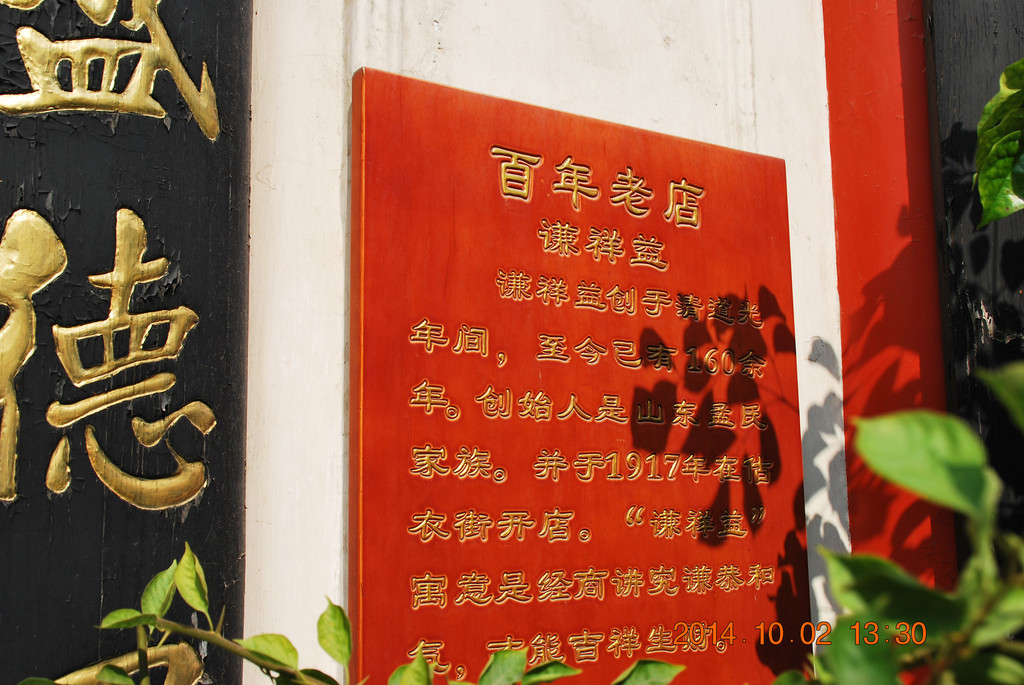 盛
德
百年老店
谦祥益
谦祥益创于清道光
年间，至今已有160余
年。创始人是山东孟氏
家族。并于1917年在估
衣街开店。“谦祥益”
寓意是经商讲究谦恭和
气，才能吉祥生财。
2014.10.02 13:30